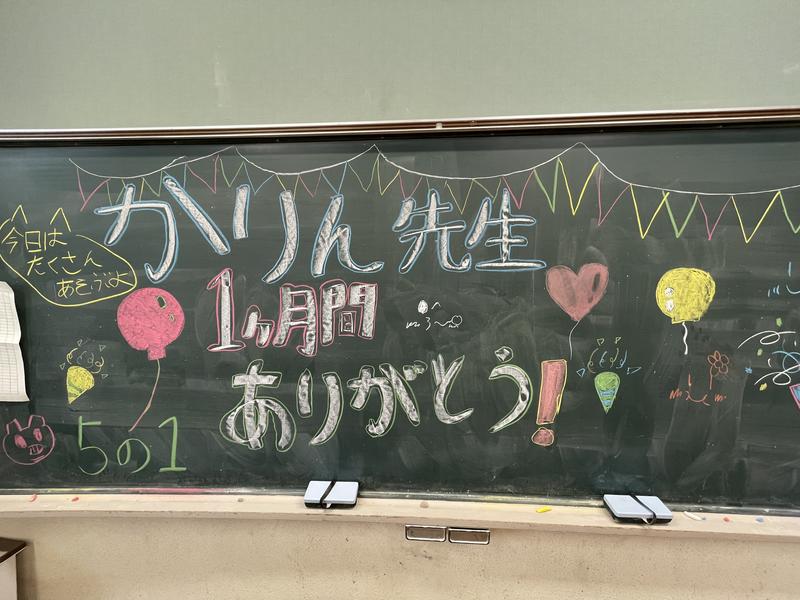 かりん先生
今日は
たくさん
あそぶよ
1ヶ月間
ありがとう!
5の1